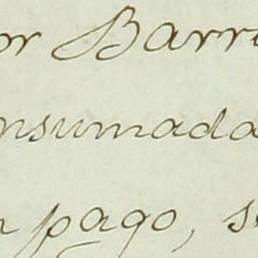 or Barri
nsumada
n pago, s